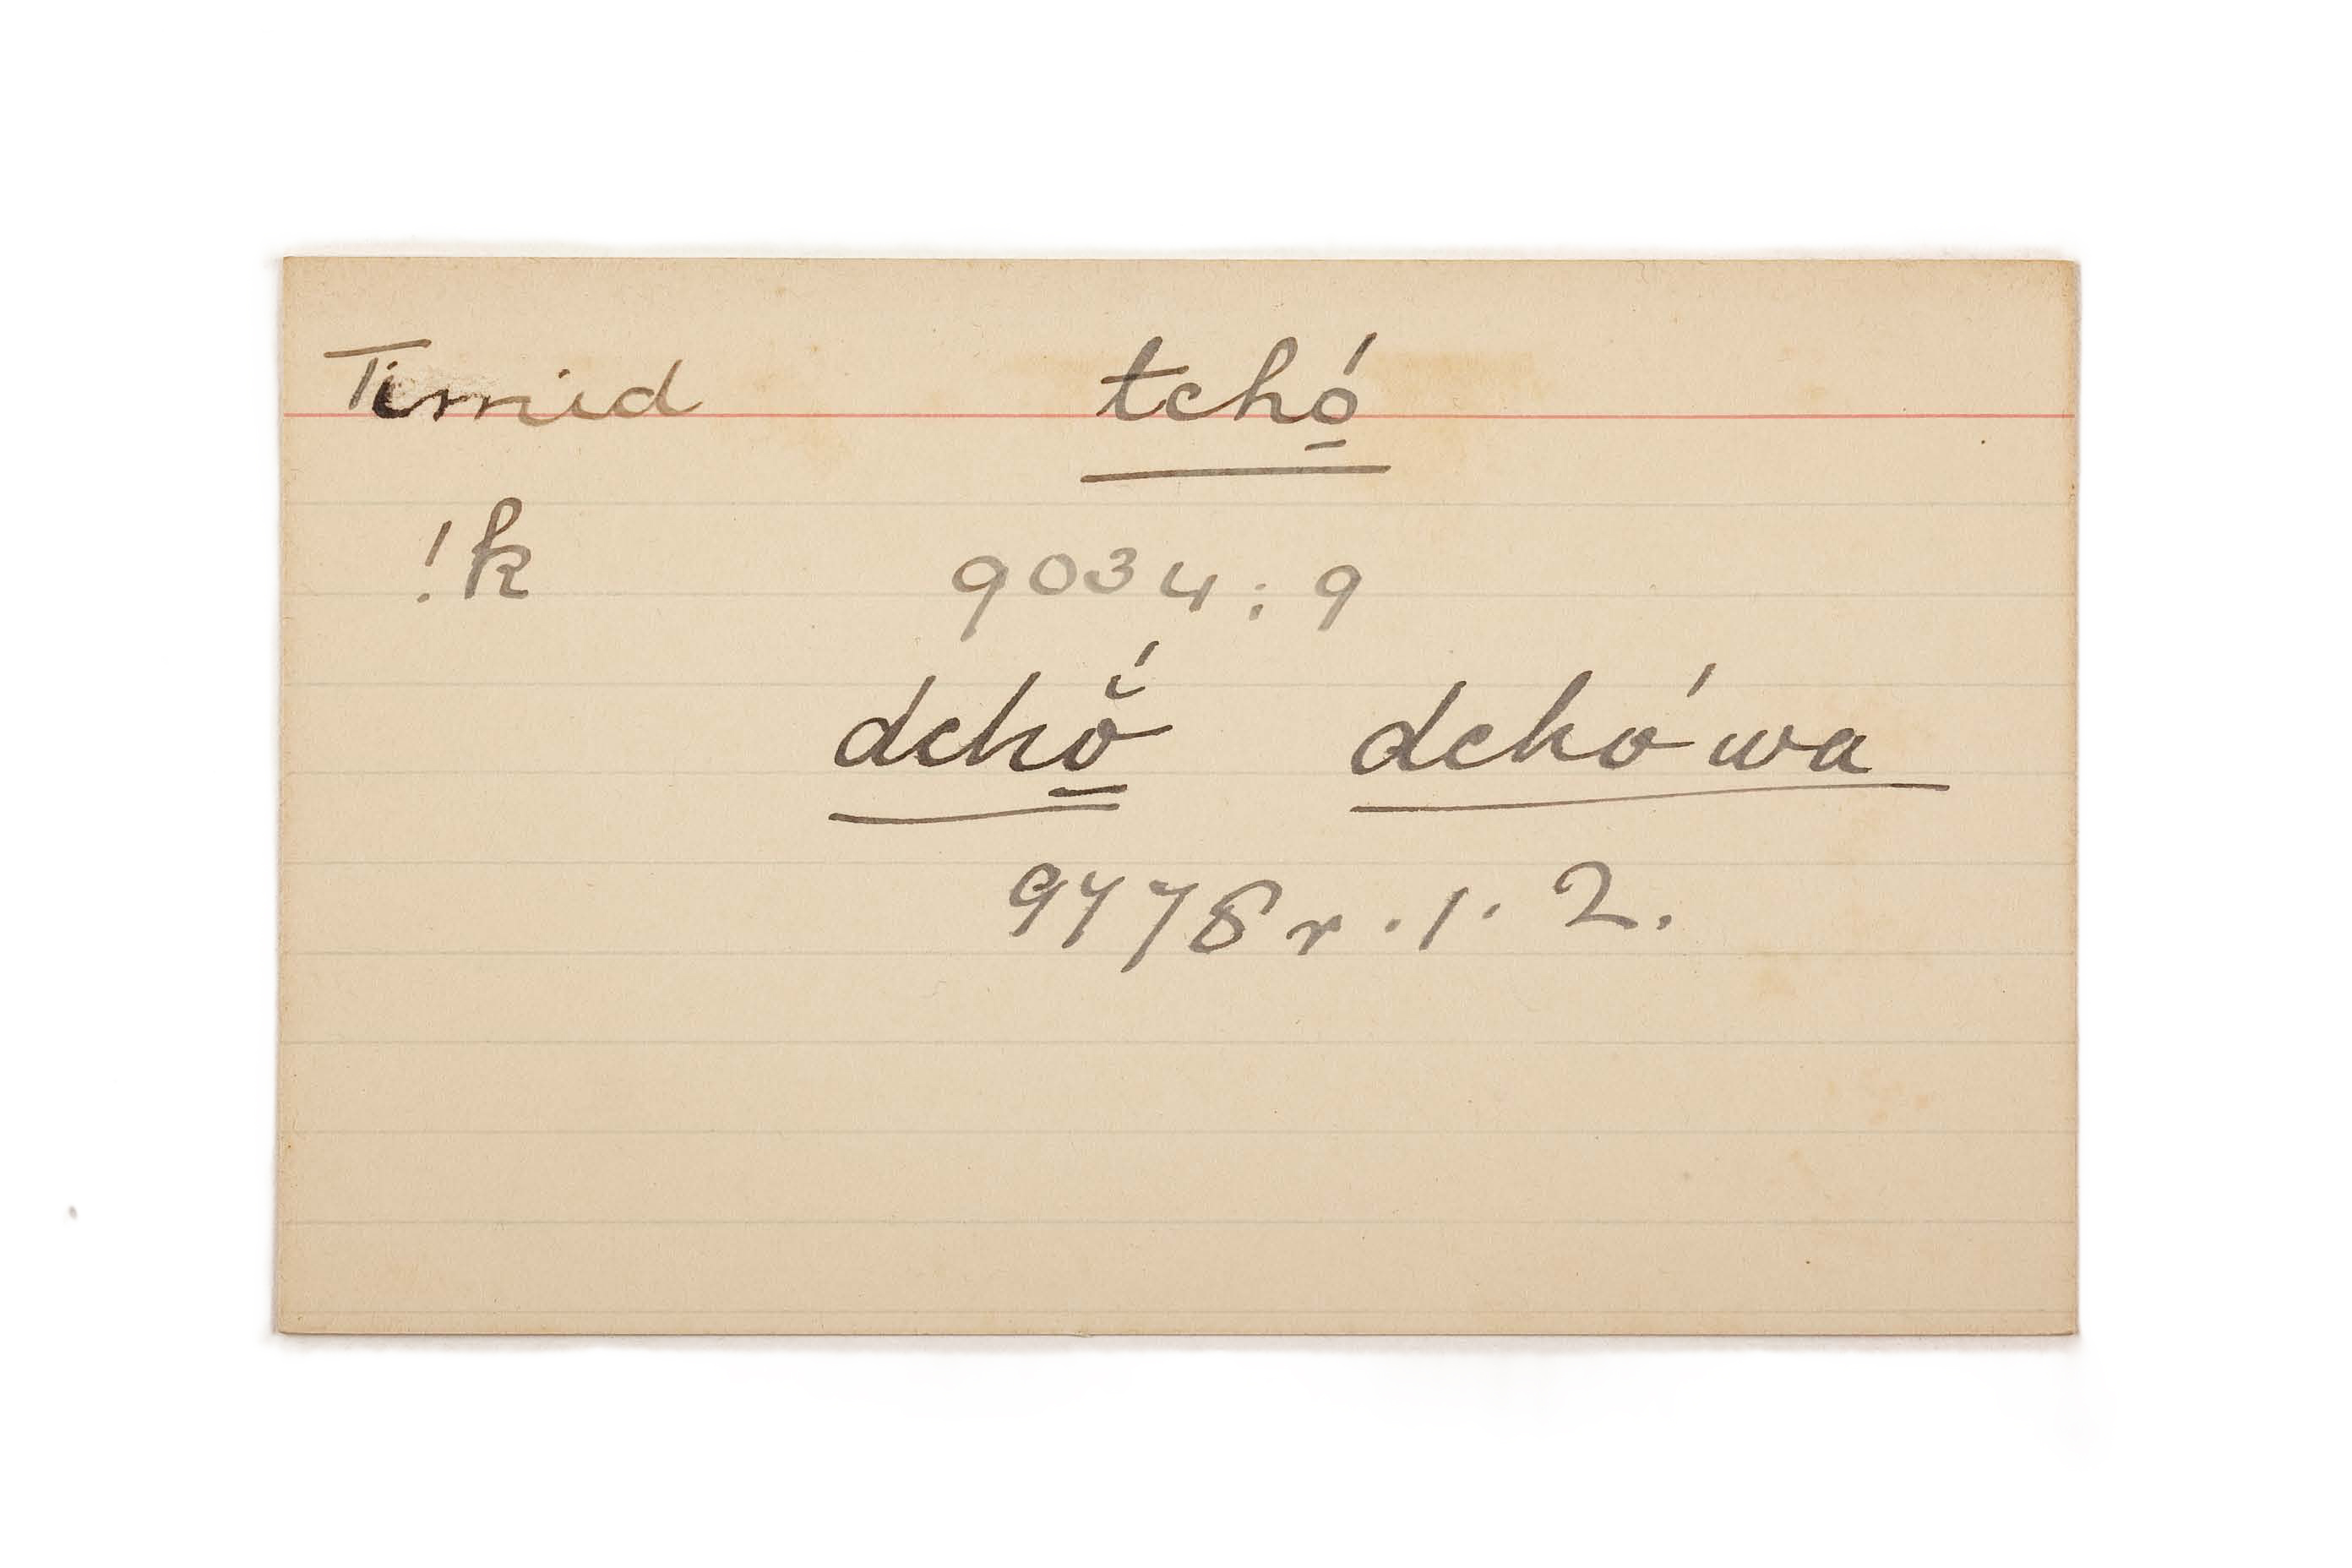 Timid tchó̱
!k 9034:9
dchŏ̱́ dchó'wa
9778 r. 1. 2.